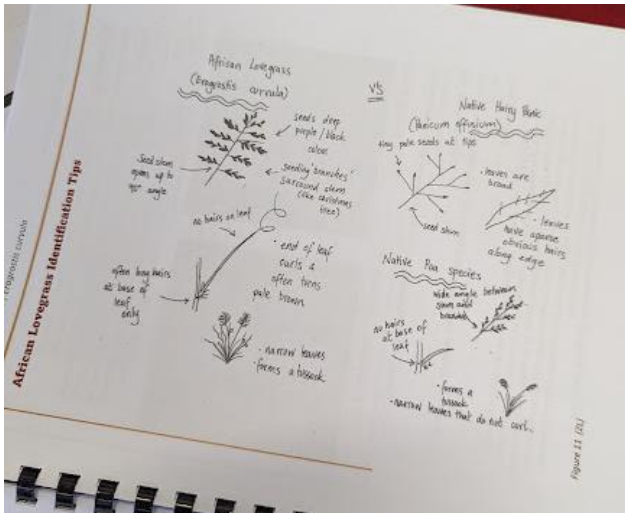 Eragrostis curvula
African Lovegrass Identification Tips
African Lovegrass
(Eragrostis curvula)
seeds deep
purple/black
color
Seed stem
opens up to
90° angle
seeding "branches"
surround stem
(like christmas
tree)
no hairs on leaf
• end of leaf
curls &
often turns
pale brown
often long hairs
at base of
leaf
only
• narrow leaves
• forms a tussock
V's
Native Hairy Panic
(Panicum effusum)
tiny pale seeds at tips
seed stem
• leaves are
broad
• leaves
have sparse
obvious hairs
along edge
Native Poa species
wide angle between
stem and
branches
no hairs
at base of
leaf
• forms a
tussock
• narrow leaves that do not curl
Figure 11 (ZL)